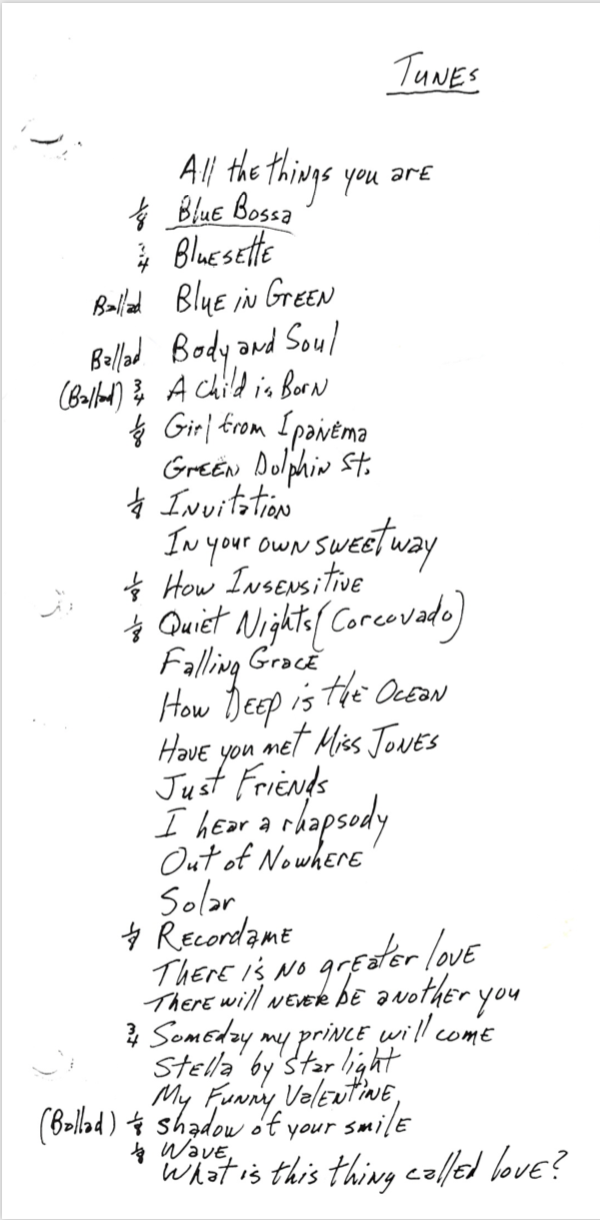 TUNES
All the things you are
1/8 Blue Bossa
3/4 Bluesette
Ballad Blue in Green
Ballad Body and Soul
(Ballad) 3/4 A Child is Born
1/8 Girl from Ipanema
Green Dolphin St.
1/8 Invitation
In your own sweet way
1/8 How Insensitive
1/8 Quiet Nights (Corcovado)
Falling Grace
How Deep is the Ocean
Have you met Miss Jones
Just Friends
I hear a rhapsody
Out of Nowhere
Solar
1/8 Recordame
There is no greater love
There will never be another you
3/4 Someday my prince will come
Stella by Starlight
My Funny Valentine
(Ballad) 1/8 Shadow of your smile
1/8 Wave
What is this thing called love?